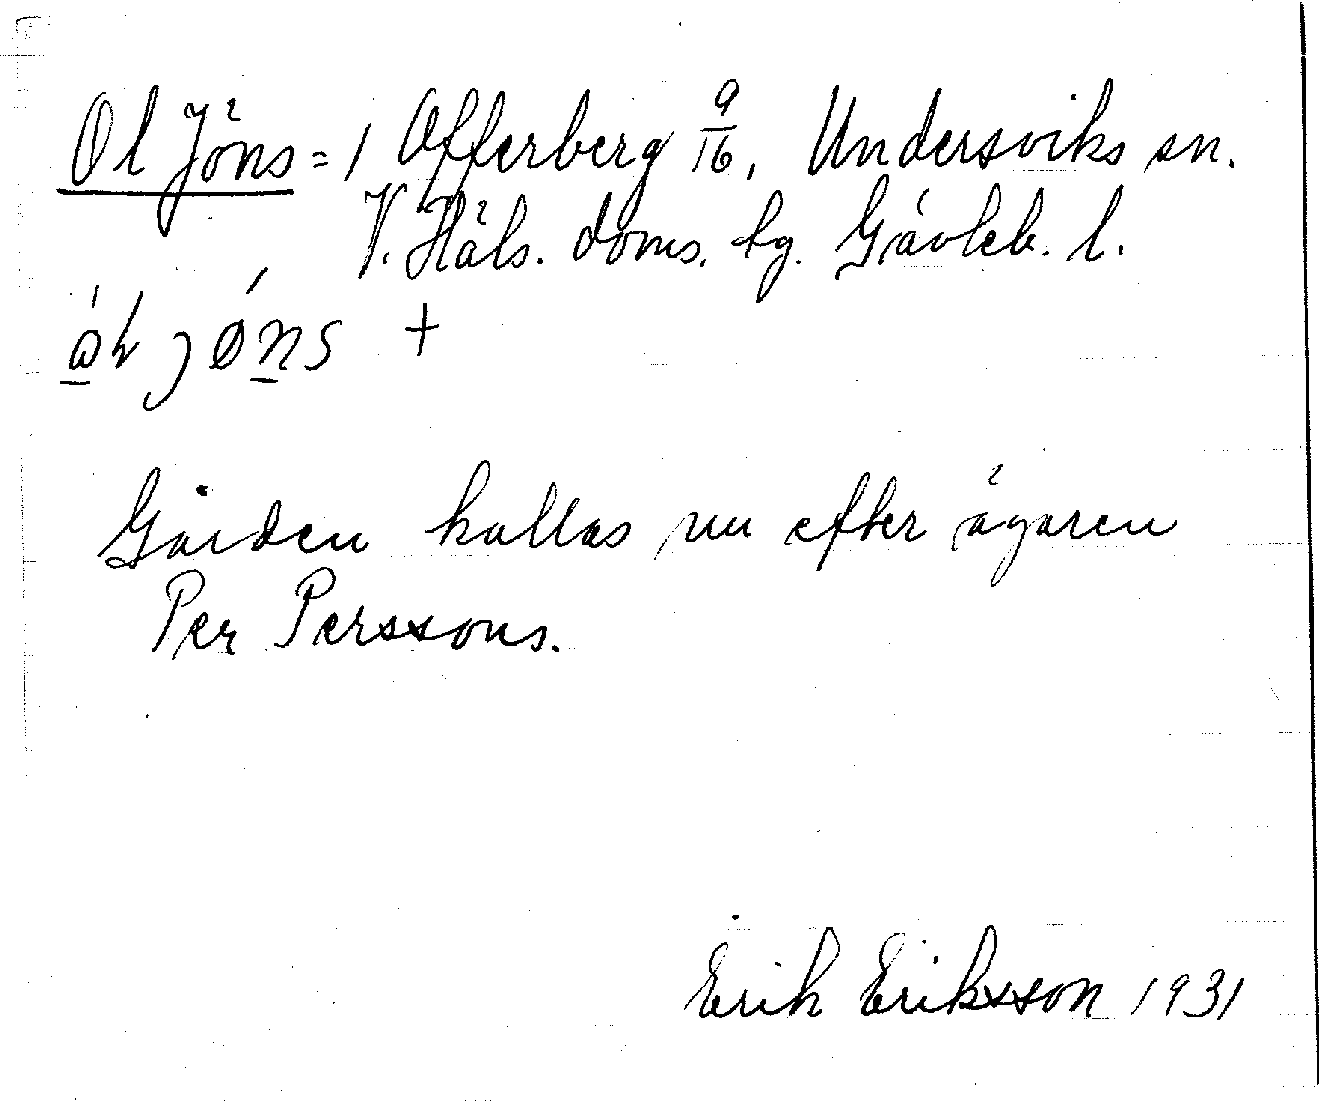 Ol Jöns = 1 Offerberg 9/16, Undersviks sn.
V. Häls. doms. hg. Gävleb. l.
jøns +
Gården kallas nu efter ägaren
Per Perssons.
Erik Eriksson 1931